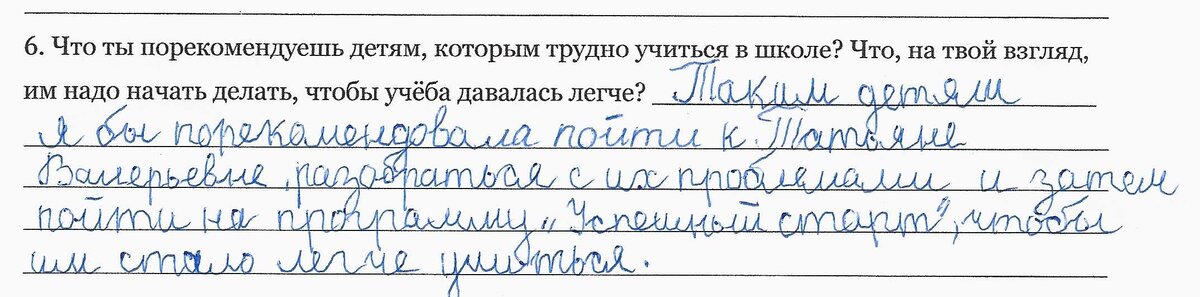 6. Что ты порекомендуешь детям, которым трудно учиться в школе? Что, на твой взгляд,
им надо начать делать, чтобы учёба давалась легче? Таким детям
я бы порекомендовала пойти к Татьяне
Валерьевне, разобраться с их проблемами и затем
пойти на программу „Успешный старт", чтобы
им стало легче учиться.